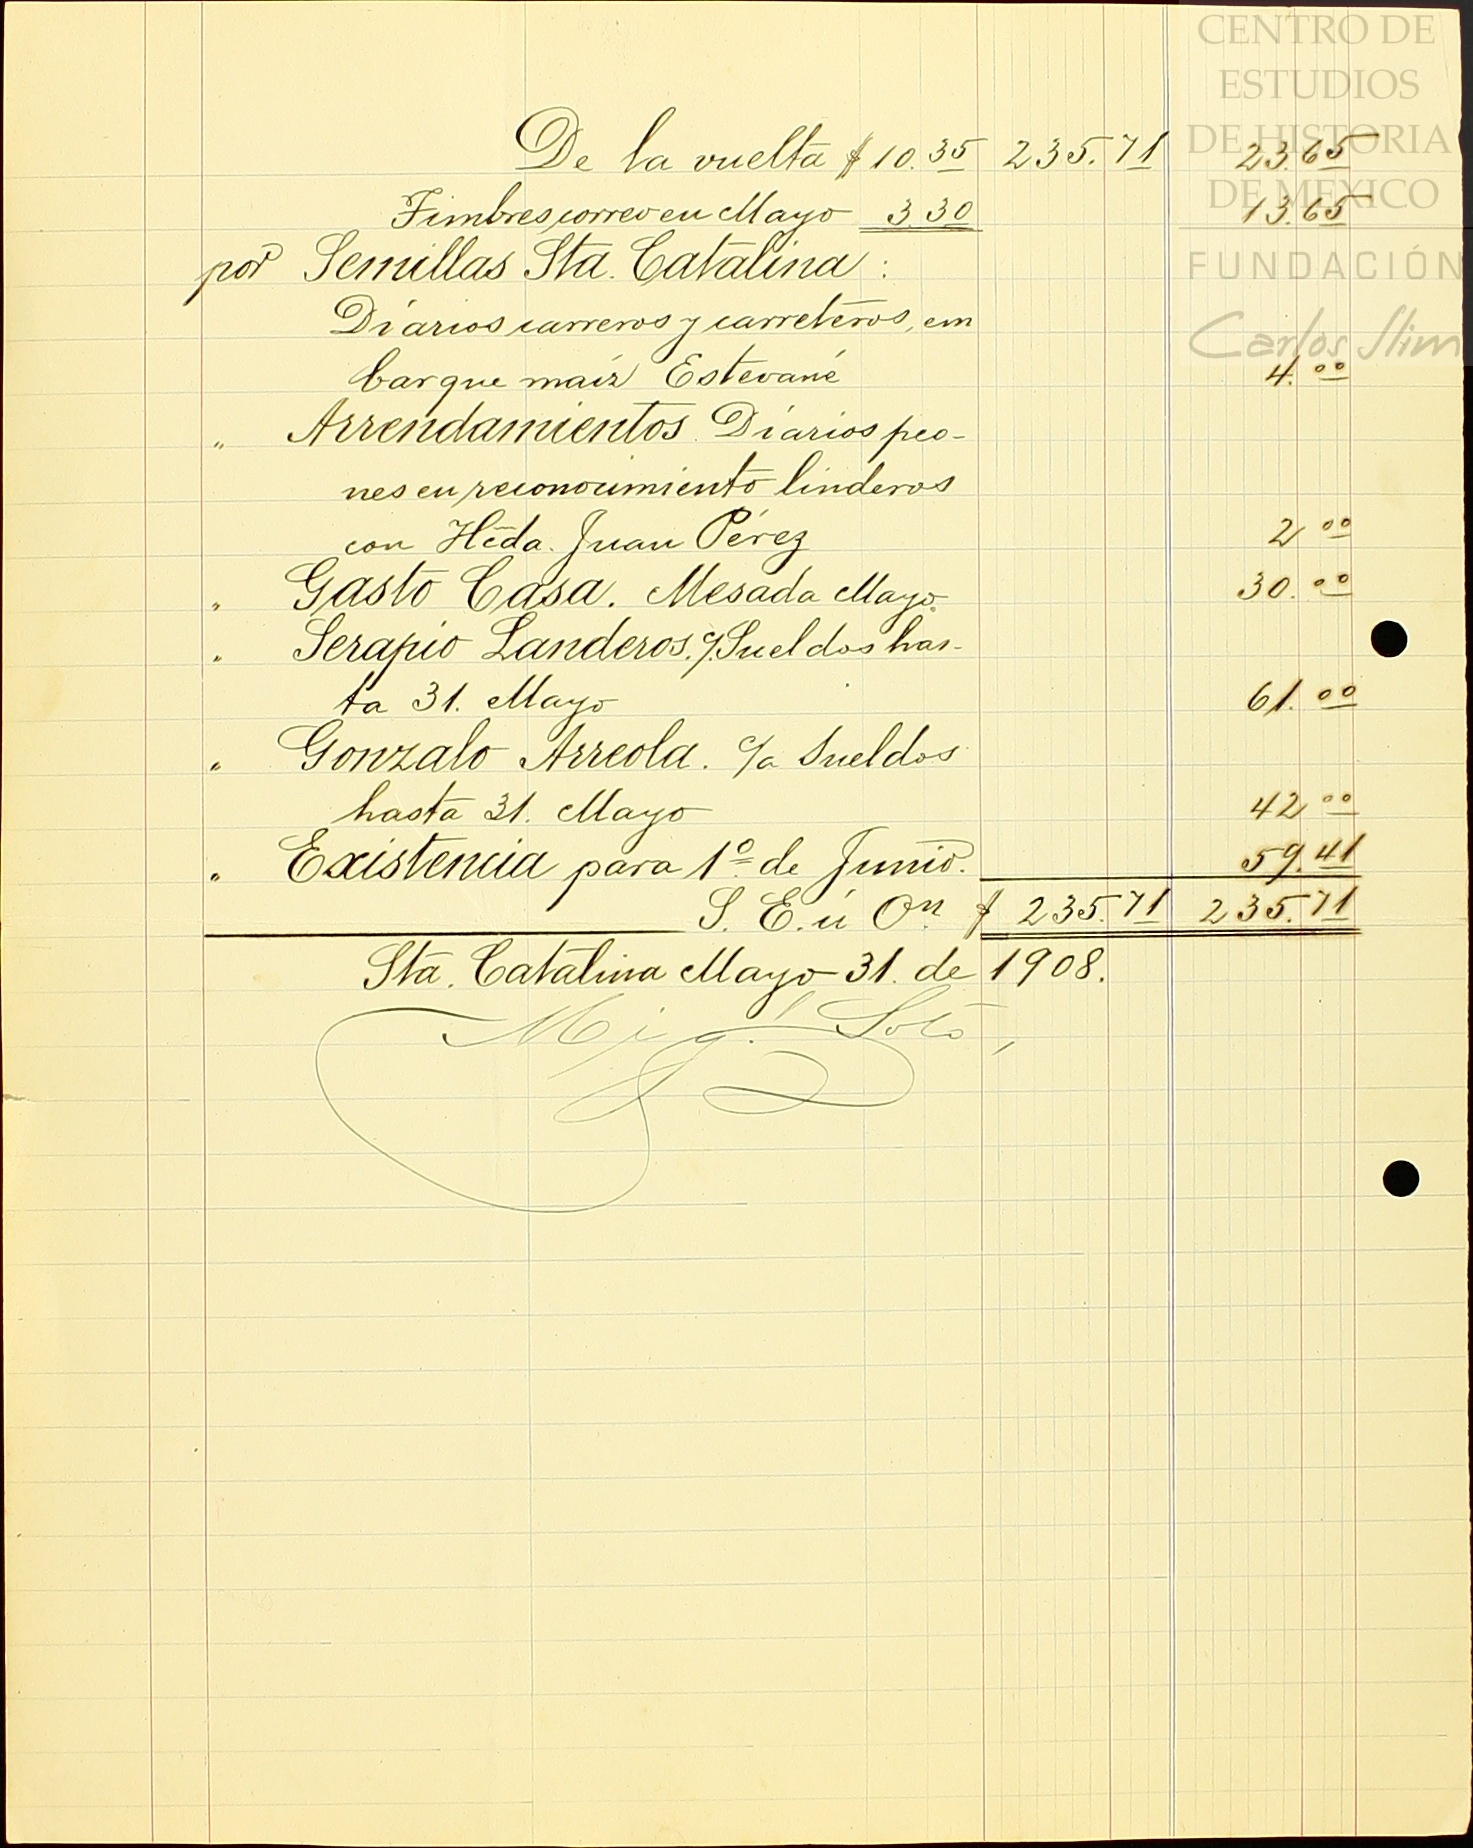 CENTRO DE
ESTUDIOS
DE HISTORIA
DE MEXICO
FUNDACIÓN
Carlos Slim
De la vuelta $ 10.35 235.71 23.65
Timbres correo en Mayo 3.30 13.65
por Semillas Sta. Catalina:
Diarios carreros y carreteros, em
barque maíz Estevané 4.00
" Arrendamientos. Diarios peo-
nes en reconocimiento linderos
con Hcda. Juan Pérez 2.00
" Gasto Casa. Mesada Mayo. 30.00
" Serapio Landeros. c/ Sueldos has-
ta 31. Mayo 61.00
" Gonzalo Arreola. c/a Sueldos
hasta 31. Mayo 42.00
" Existencia para 1º de Junio. 59.41
S. E. ú On. $ 235.71 235.71
Sta. Catalina Mayo 31. de 1908.
Migl. Soto,